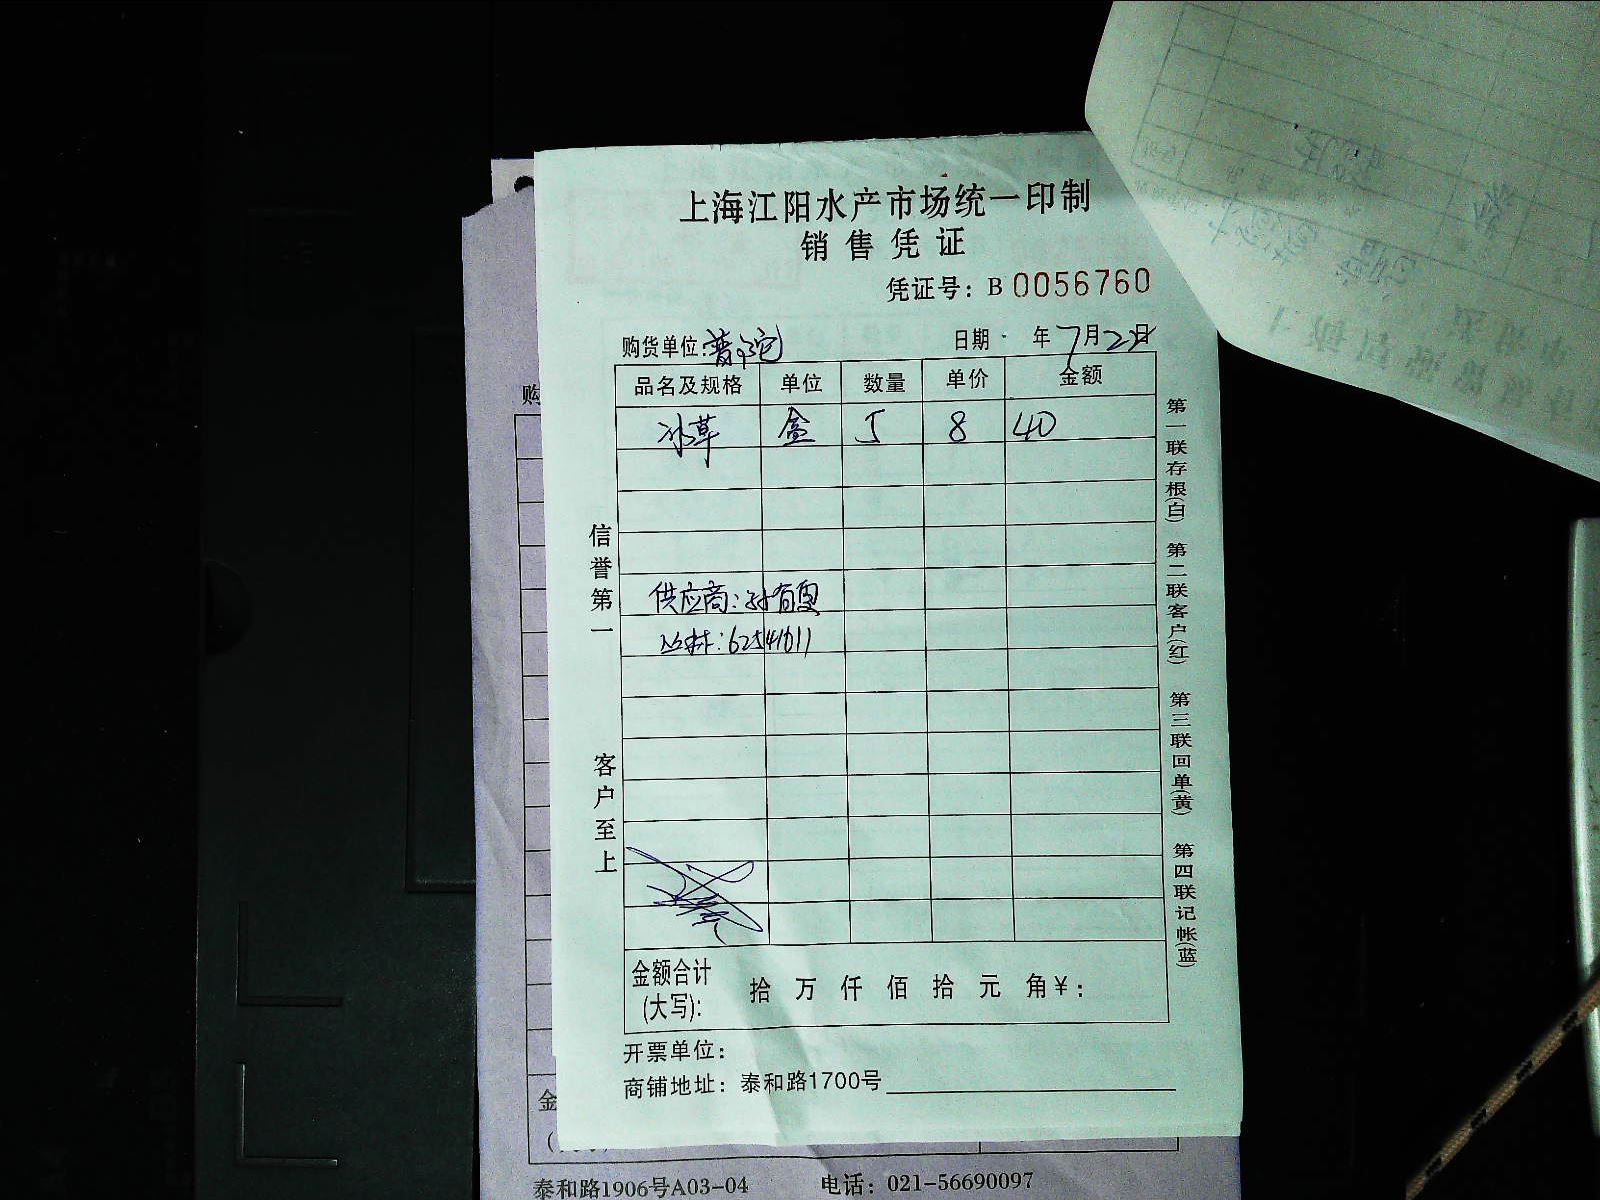 上海江阳水产市场统一印制
销售凭证
凭证号：B 0056760
购货单位：普陀 日期 年7月22日
品名及规格 单位 数量 单价 金额
冰草 盒 5 8 40
供应商：孙有
丛林：62541011
信誉第一
客户至上
第一联存根(白) 第二联客户(红) 第三联回单(黄) 第四联记帐(蓝)
金额合计 拾 万 仟 佰 拾 元 角￥：
(大写)：
开票单位：
商铺地址：泰和路1700号
购
金
泰和路1906号A03-04 电话：021-56690097